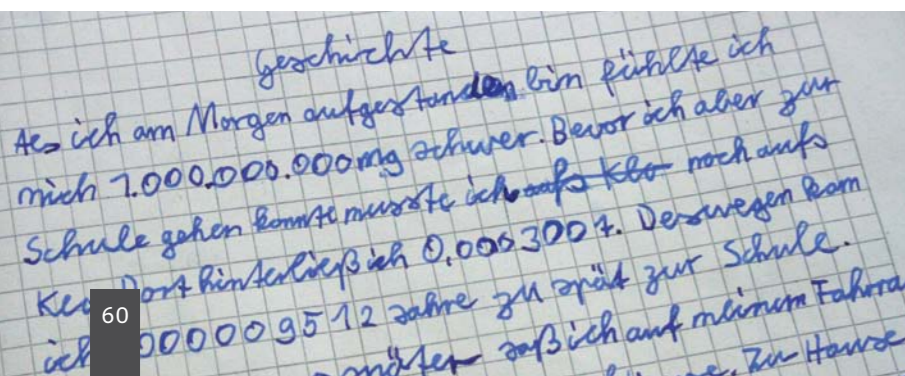 Geschichte
Als ich am Morgen aufgestanden bin fühlte ich
mich 1.000.000.000mg schwer. Bevor ich aber zur
Schule gehen konnte musste ich aufs Klo noch aufs
Dort hinterließ ich 0,0003007. Deswegen kam
ich 000009512 Jahre zu spät zur Schule.
später saß ich auf meinem Fahrra
Zu Hause
60